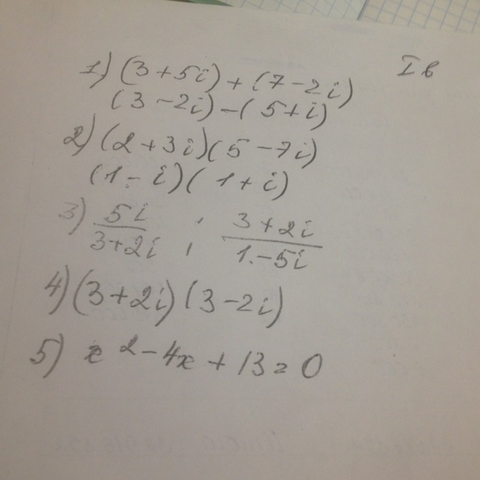 I в
1) (3 + 5i) + (7 - 2i)
(3 - 2i) - (5 + i)
2) (2 + 3i)(5 - 7i)
(1 - i)(1 + i)
3) 5i / 3+2i ; 3+2i / 1-5i
4) (3 + 2i)(3 - 2i)
5) x² - 4x + 13 = 0